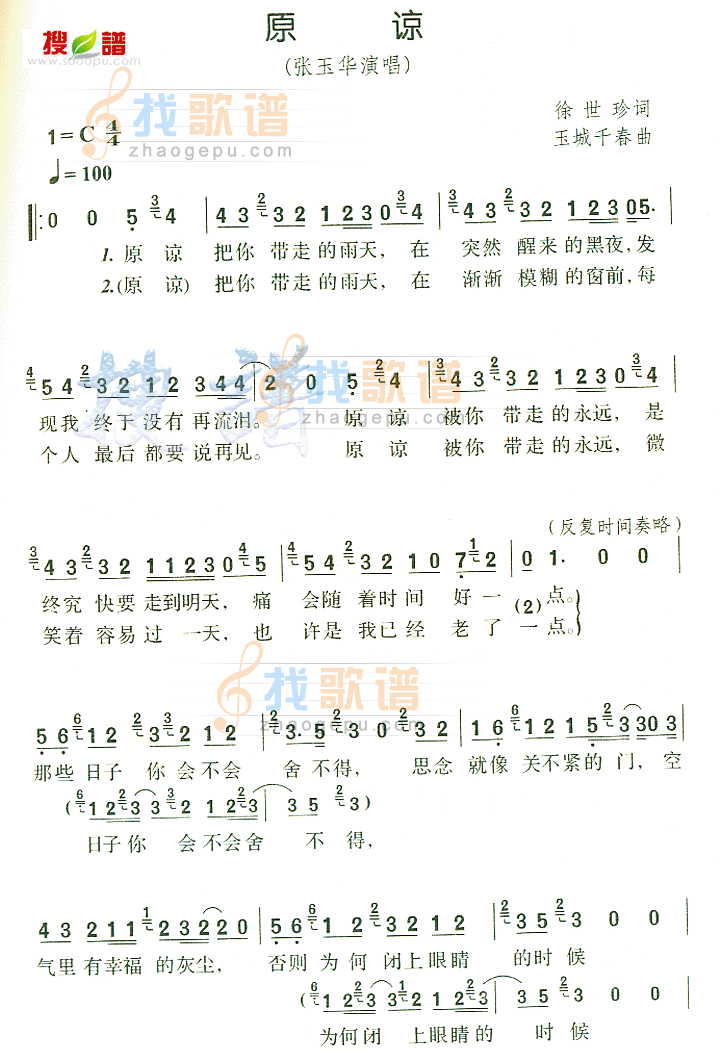 搜谱
www.sooopu.com
原 谅
(张玉华演唱)
徐世珍词
玉城千春曲
1=C 4/4
♩=100
找歌谱
zhaogepu.com
0 0 5 3 4 | 4 3 2 3 2 1 2 3 0 3 4 | 3 4 3 2 3 2 1 2 3 0 5.
1.原 谅 把你 带走的雨天, 在 突然 醒来的黑夜,发
2.(原 谅) 把你 带走的雨天, 在 渐渐 模糊的窗前,每
4 5 4 2 3 2 1 2 3 4 4 | 2 0 5 2 4 | 3 4 3 2 3 2 1 2 3 0 3 4
找歌谱
zhaogepu.com
现我 终于 没有 再流泪。 原 谅 被你 带走的永远, 是
个人 最后 都要 说再见。 原 谅 被你 带走的永远, 微
(反复时间奏略)
3 4 3 2 3 2 1 1 2 3 0 4 5 | 4 5 4 2 3 2 1 0 7 1 2 | 0 1. 0 0
终究 快要 走到明天, 痛 会随 着时间 好一 (2) 点。
笑着 容易 过 一天, 也 许是 我已经 老了 一点。
找歌谱
zhaogepu.com
5 6 6 1 2 2 3 3 2 1 2 | 2 3. 5 2 3 0 | 1 6 6 1 2 1 5 2 3 3 0 3
那些 日子 你会不会 舍不得, 思念 就像 关不紧的门,空
(6 1 2 2 3 3 2 3 2 1 2 2 3 | 3 5 2 3)
日子你 会不会舍 不得,
4 3 2 1 1 1 2 3 2 2 0 | 5 6 6 1 2 2 3 2 1 2 | 2 3 5 2 3 0 0
气里有幸福 的灰尘, 否则为何 闭上眼睛 的时候
(6 1 2 2 3 3 2 3 2 1 2 2 3 | 3 5 2 3 0 0
为何闭 上眼睛的 时候